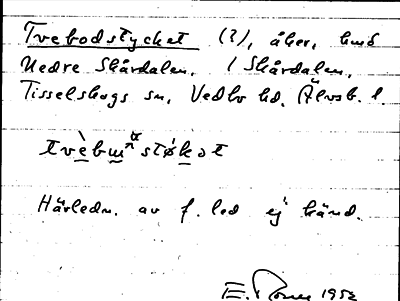 Tvebodstycket (?), åker, hmd
Nedre Skårdalen, / Skårdalen,
Tisselskogs sn, Vedbo hd, Älvsb. l.
Härledn. av f. led ej känd.
E. 1952